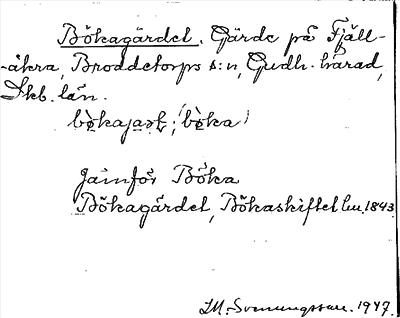 Bökagärdet. Gärde på Fjäll-
-åkra, Broddetorps s:n, Gudh. härad,
Skb. län.
Jämför Böka
Bökagärdet, Bökaskiftet lm. 1843
I.M. Svenungsson. 1947.